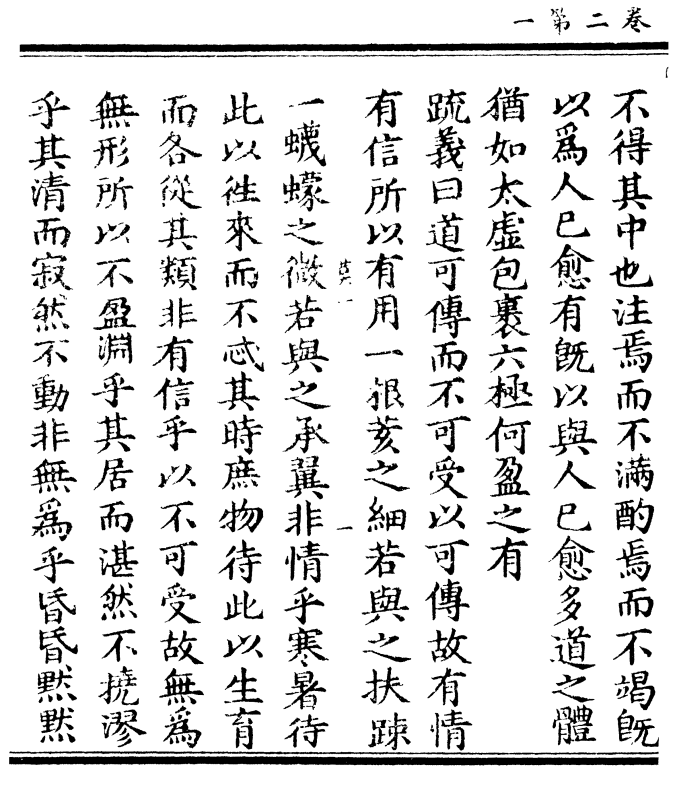 卷二第一
不得其中也注焉而不滿酌焉而不竭旣
以爲人已愈有旣以與人已愈多道之體
猶如太虛包裹六極何盈之有
䟽義曰道可傳而不可受以可傳故有情
有信所以有用一根荄之細若與之扶踈
一蠛蠓之微若與之承翼非情乎寒暑待
此以徃來而不忒其時庶物待此以生育
而各從其類非有信乎以不可受故無爲
無形所以不盈淵乎其居而湛然不撓漻
乎其清而寂然不動非無爲乎昏昏默默